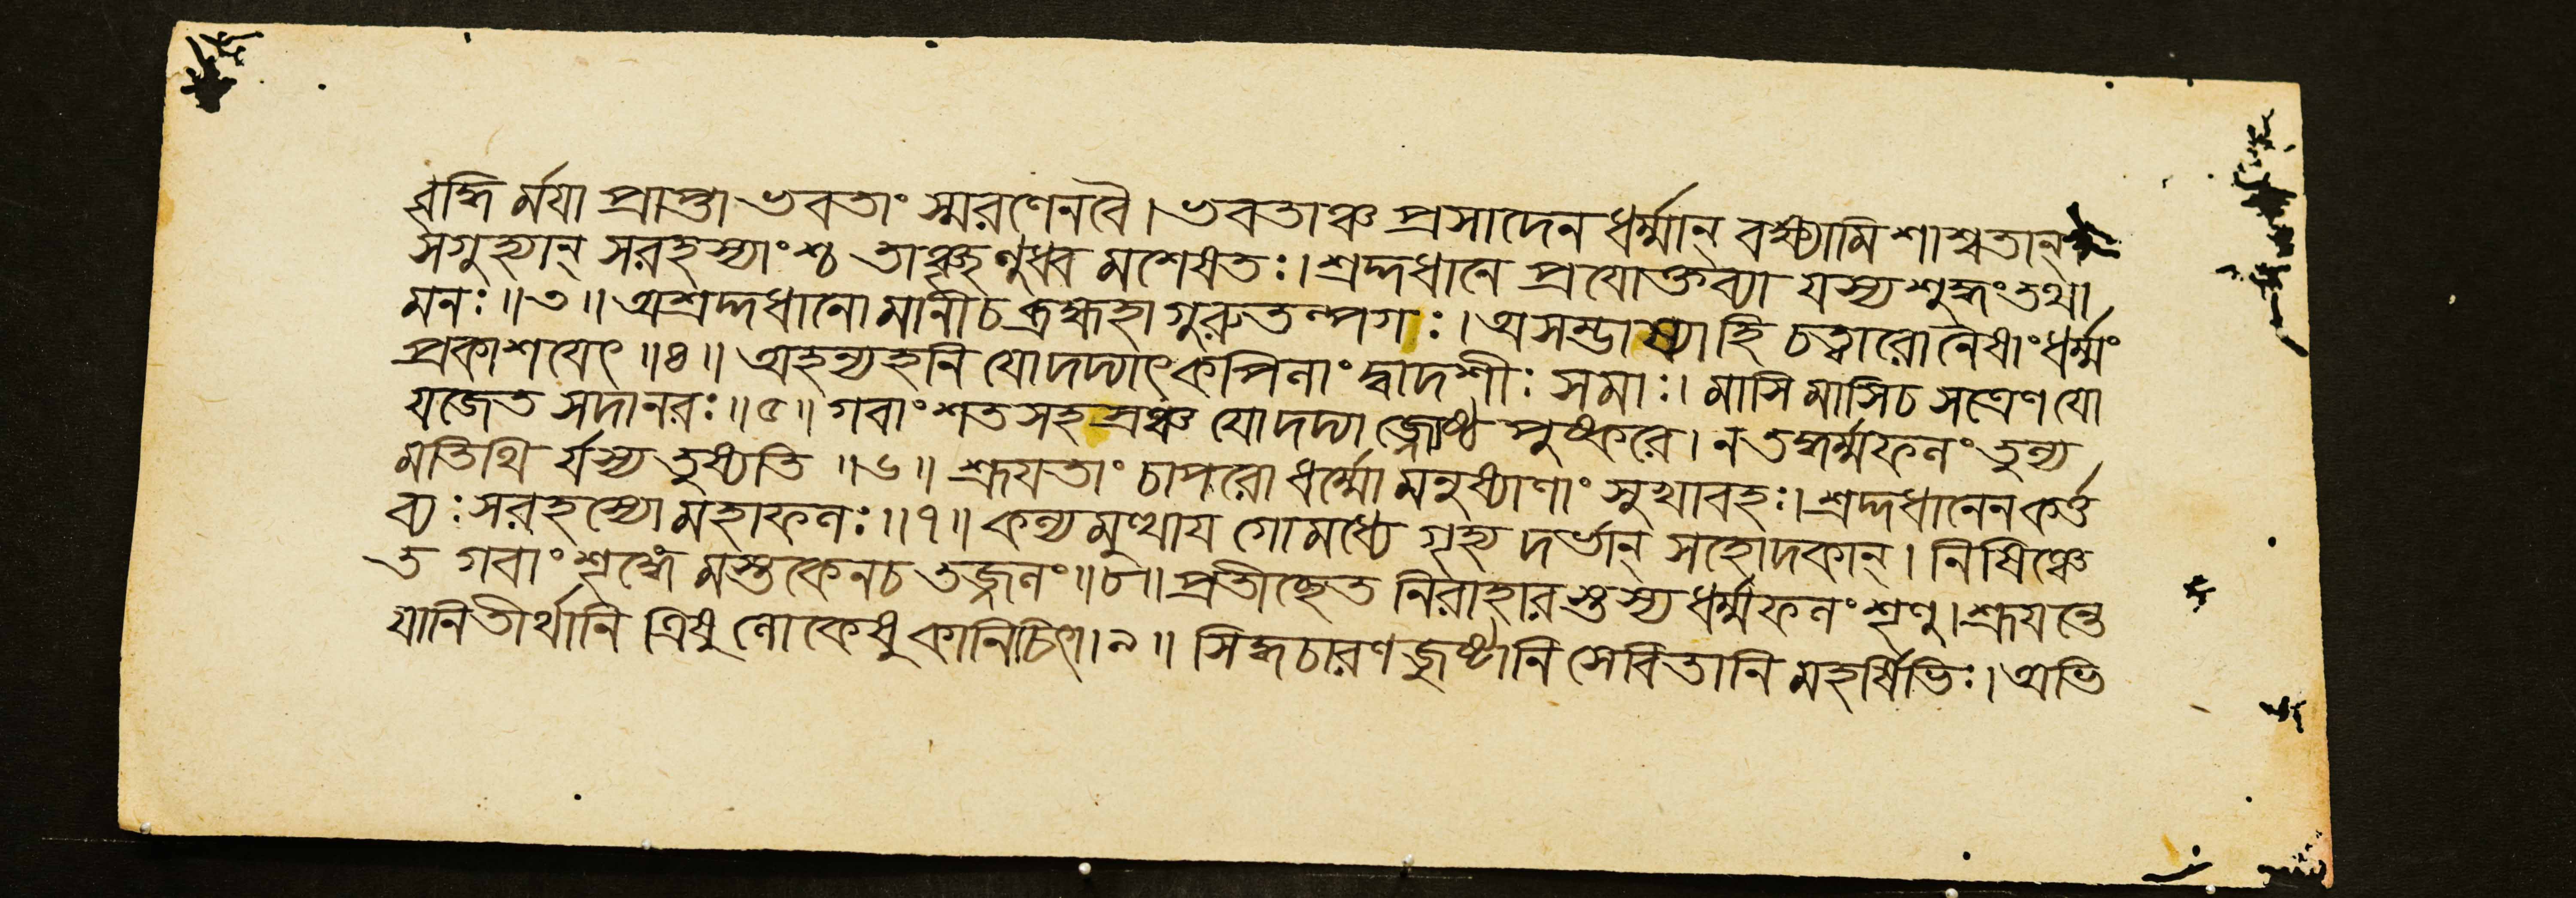 বৃদ্ধি র্ময়া প্রাপ্তা ভবতাং স্মরণেনবৈ। ভবতাঞ্চ প্রসাদেন ধর্ম্মান্ বক্ষ্যামি শাশ্বতান্
সগুহ্যান্ সরহস্যাংশ্চ তাঞ্ছৃণুধ্ব মশেষতঃ। শ্রদ্দধানে প্রযোক্তব্যা যস্য শুদ্ধং তথা
মনঃ॥৩॥ অশ্রদ্দধানো মানীচ ব্রহ্মহা গুরুতল্পগঃ। অসম্ভাষ্যাহি চত্বারোনৈষাং ধর্ম্মং
প্রকাশয়েৎ॥৪॥ অহন্যহনি যোদদ্যাৎ কপিলাং দ্বাদশীঃ সমাঃ। মাসি মাসিচ সত্রেণ যো
যজেত সদানরঃ॥৫॥ গবাং শতসহস্রঞ্চ যোদদ্যাজ্জ্যেষ্ঠ পুষ্করে। নতদ্ধর্ম্মফলং তুল্য
মতিথি র্যস্য তুষ্যতি॥৬॥ শ্রূয়তাং চাপরো ধর্ম্মো মনুষ্যাণাং সুখাবহঃ। শ্রদ্দধানেনকর্ত্ত
ব্যঃ সরহস্যো মহাফলঃ॥৭॥ কল্য মুত্থায় গোমধ্যে গৃহ্য দর্ভান্ সহোদকান্। নিষিঞ্চে
ত গবাং শৃঙ্গে মস্তকেনচ তজ্জলং॥৮॥ প্রতীচ্ছেত নিরাহারস্তস্য ধর্ম্মফলং শৃণু। শ্রূয়ন্তে
যানিতীর্থানি ত্রিষু লোকেষু কানিচিৎ।৯॥ সিদ্ধচারণ জুষ্টানি সেবিতানি মহর্ষিভিঃ। অভি